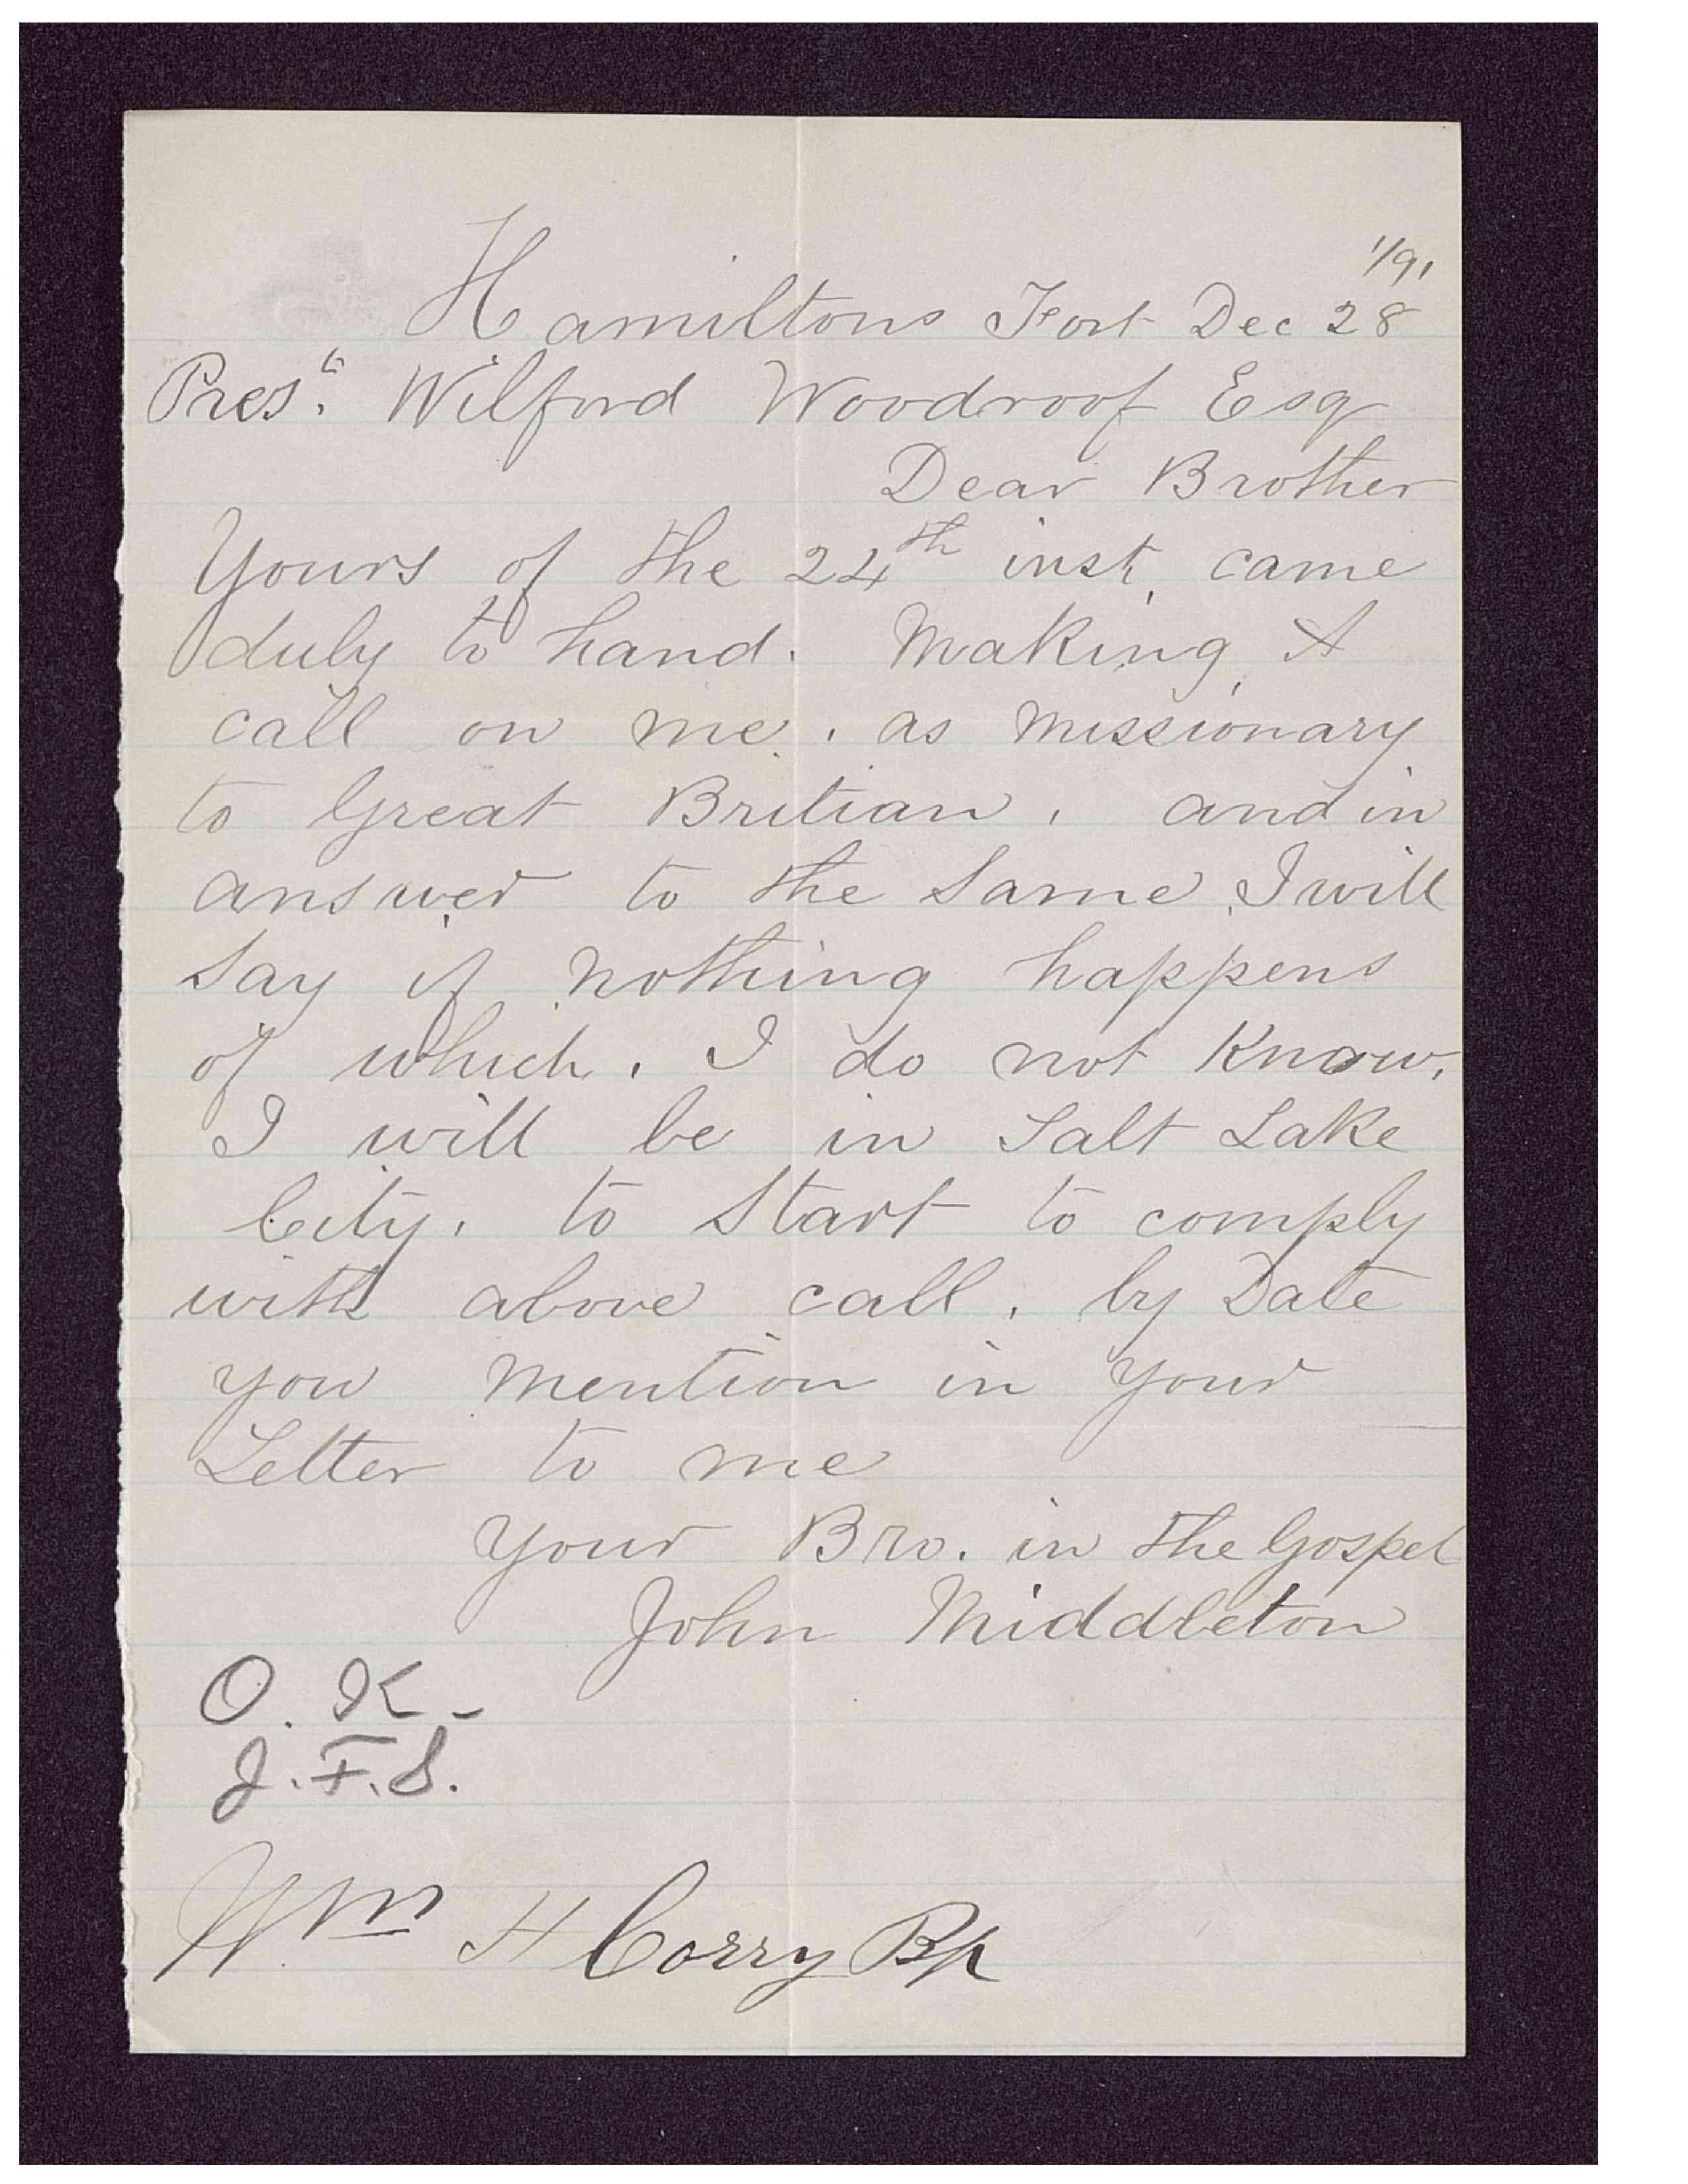 1/91
Hamiltons Fort Dec 28
Prest. Wilford Woodroof Esq
Dear Brother
Yours of the 24th inst, came
duly to hand. Making, A
call on me, as Missionary
to Great Britian, and in
answer to the Same, I will
Say if nothing happens
of which, I do not Know,
I will be in Salt Lake
City, to Start to comply
with above call, by Date
you Mention in your
Letter to me
Your Bro. in the Gospel
John Middleton
O. K-
J.F.S.
Wm H Corry Bp